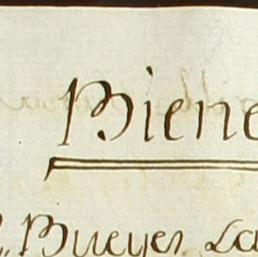 Biene
Bueyes La